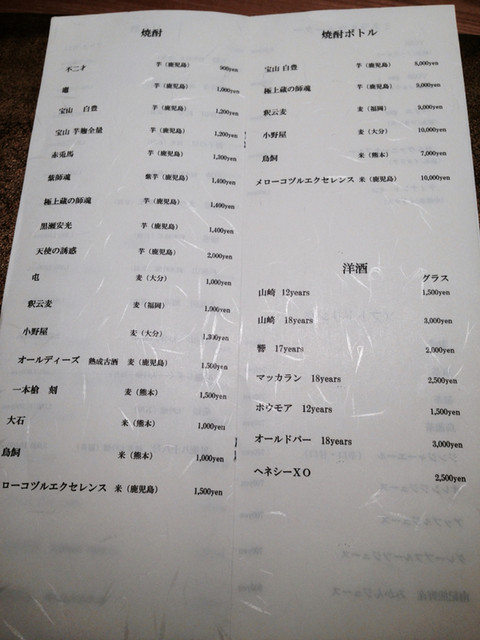 焼酎
不二才 芋（鹿児島） 900yen
芋（鹿児島） 1,000yen
宝山 白豊 芋（鹿児島） 1,200yen
宝山 芋麹全量 芋（鹿児島） 1,200yen
赤兎馬 芋（鹿児島） 1,300yen
紫師魂 紫芋（鹿児島） 1,400yen
極上蔵の師魂 芋（鹿児島） 1,400yen
黒瀬安光 芋（鹿児島） 1,400yen
天使の誘惑 芋（鹿児島） 2,000yen
屯 麦（大分） 1,000yen
釈云麦 麦（福岡） 1,000yen
小野屋 麦（大分） 1,300yen
オールディーズ 熟成古酒 麦（鹿児島） 1,500yen
一本槍 刻 麦（熊本） 1,500yen
大石 米（熊本） 1,000yen
鳥飼 米（熊本） 1,000yen
ローコヅルエクセレンス 米（鹿児島） 1,500yen
焼酎ボトル
宝山 白豊 芋（鹿児島） 8,000yen
極上蔵の師魂 芋（鹿児島） 9,000yen
釈云麦 麦（福岡） 9,000yen
小野屋 麦（大分） 10,000yen
鳥飼 米（熊本） 7,000yen
メローコヅルエクセレンス 米（鹿児島） 10,000yen
洋酒
グラス
山崎 12years 1,500yen
山崎 18years 3,000yen
響 17years 2,000yen
マッカラン 18years 2,500yen
ホウモア 12years 1,500yen
オールドパー 18years 3,000yen
ヘネシーXO 2,500yen